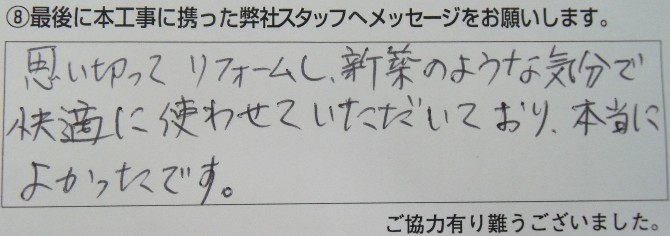 ⑧最後に本工事に携った弊社スタッフへメッセージをお願いします。
思い切って リフォームし、新築のような気分で
快適に使わせていただいており、本当に
よかったです。
ご協力有り難うございました。